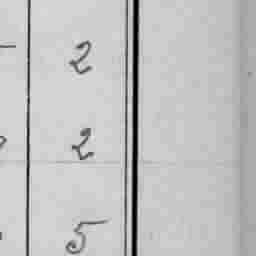 2
2
5